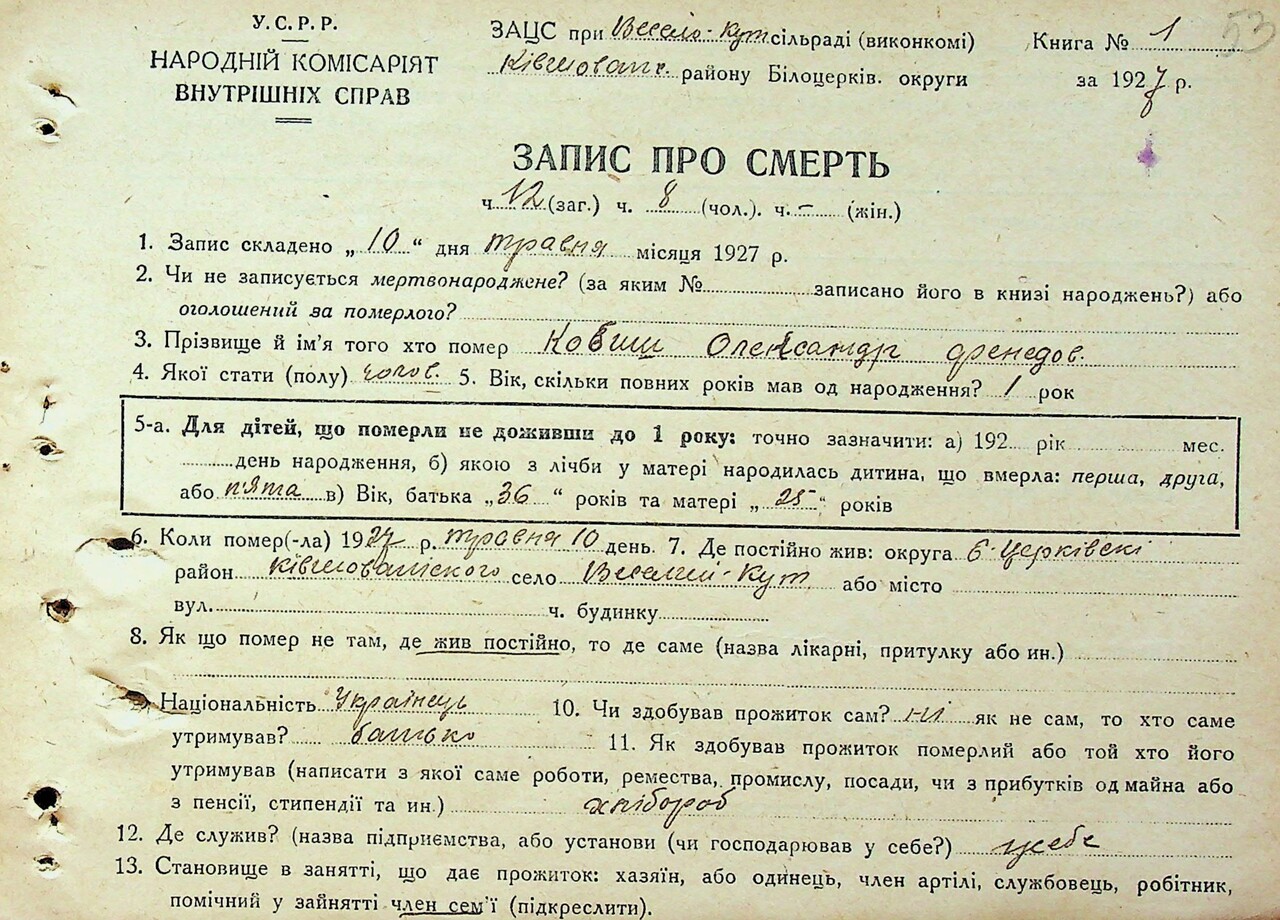 У.С.Р.Р.
НАРОДНІЙ КОМІСАРІЯТ
ВНУТРІШНІХ СПРАВ
ЗАЦС при Весело-Кут сільраді (виконкомі)
району Білоцерків. округи
Книга № 1
за 1927 р.
53
ЗАПИС ПРО СМЕРТЬ
ч. 12 (заг.) ч. 8 (чол.). ч. - (жін.)
1. Запис складено „ 10 “ дня травня місяця 1927 р.
2. Чи не записується мертвонароджене? (за яким № записано його в книзі народжень?) або
оголошений за померлого?
3. Прізвище й ім'я того хто помер Кобиш Олександр
4. Якої стати (полу) чолов. 5. Вік, скільки повних років мав од народження? 1 рок
5-а. Для дітей, що померли не доживши до 1 року: точно зазначити: а) 192 рік мес.
день народження, б) якою з лічби у матері народилась дитина, що вмерла: перша, друга,
або пята в) Вік, батька „36 “ років та матері „ 25 “ років
6. Коли помер(-ла) 1927 р. травня 10 день. 7. Де постійно жив: округа Б-Церківскі
район село Веселий-Кут або місто
вул. ч. будинку
8. Як що помер не там, де жив постійно, то де саме (назва лікарні, притулку або ин.)
Національність Украінець 10. Чи здобував прожиток сам? ні як не сам, то хто саме
утримував? батько 11. Як здобував прожиток померлий або той хто його
утримував (написати з якої саме роботи, ремества, промислу, посади, чи з прибутків од майна або
з пенсії, стипендії та ин.) хлібороб
12. Де служив? (назва підприємства, або установи (чи господарював у себе?) у себе
13. Становище в занятті, що дає прожиток: хазяїн, або одинець, член артілі, службовець, робітник,
помічний у зайнятті член сем'ї (підкреслити).